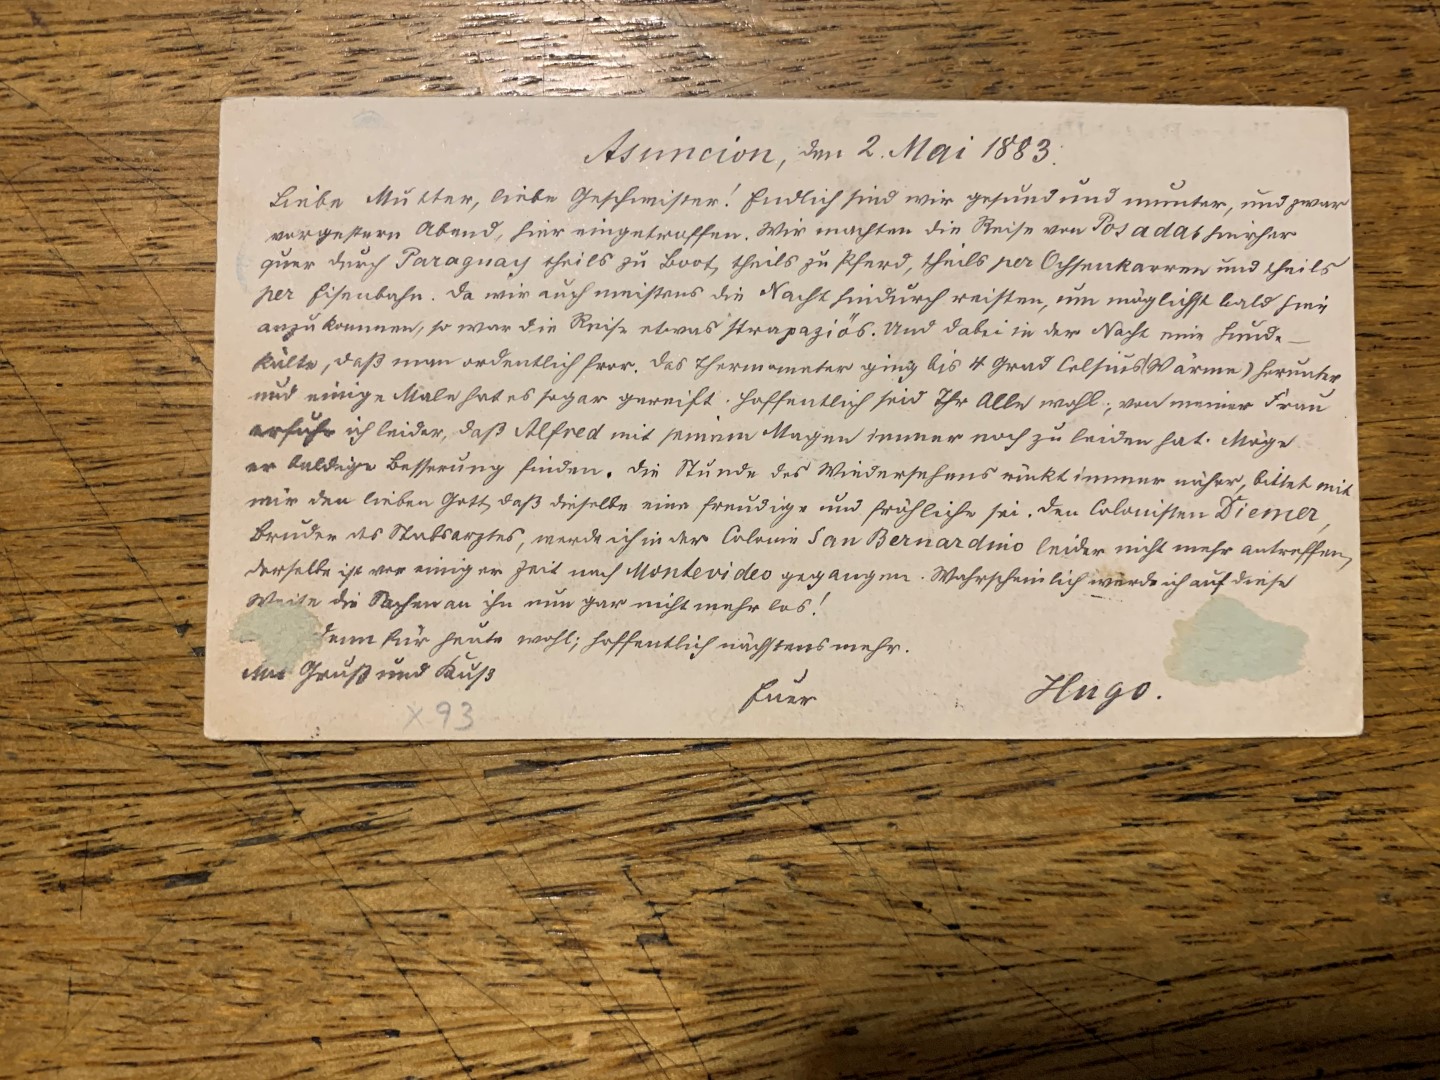 Asuncion, den 2. Mai 1883.
Liebe Mutter, liebe Geschwister! Endlich sind wir gesund und munter, und zwar
vorgestern Abend, hier eingetroffen. Wir machten die Reise von Posadas hierher
quer durch Paraguay theils zu Boot, theils zu Pferd, theils per Ochsenkarren und theils
per Eisenbahn. Da wir auch meistens die Nacht hindurch reisten, um möglichst bald hier
anzukommen, so war die Reise etwas strapaziös. Und dabei in der Nacht eine Hunde-
kälte, daß man ordentlich fror. Das Thermometer ging bis 4 Grad Celsius (Wärme) herunter
und einige Male hat es sogar gereift. Hoffentlich seid Ihr Alle wohl; von meiner Frau
erfuhr ich leider, daß Alfred mit seinem Magen immer noch zu leiden hat. Möge
er baldige Besserung finden. Die Stunde des Wiedersehens rückt immer näher, bittet mit
mir den lieben Gott, daß dieselbe eine freudige und fröhliche sei. Den Colonisten Diemer,
Bruder des Stabsarztes, werde ich in der Colonie San Bernardino leider nicht mehr antreffen,
derselbe ist vor einiger Zeit nach Montevideo gegangen. Wahrscheinlich werde ich auf diese
Weise die Sachen an ihn nun gar nicht mehr los!
denn für heute wohl; hoffentlich nächstens mehr.
Mit Gruß und Kuß
Euer Hugo.
x 93